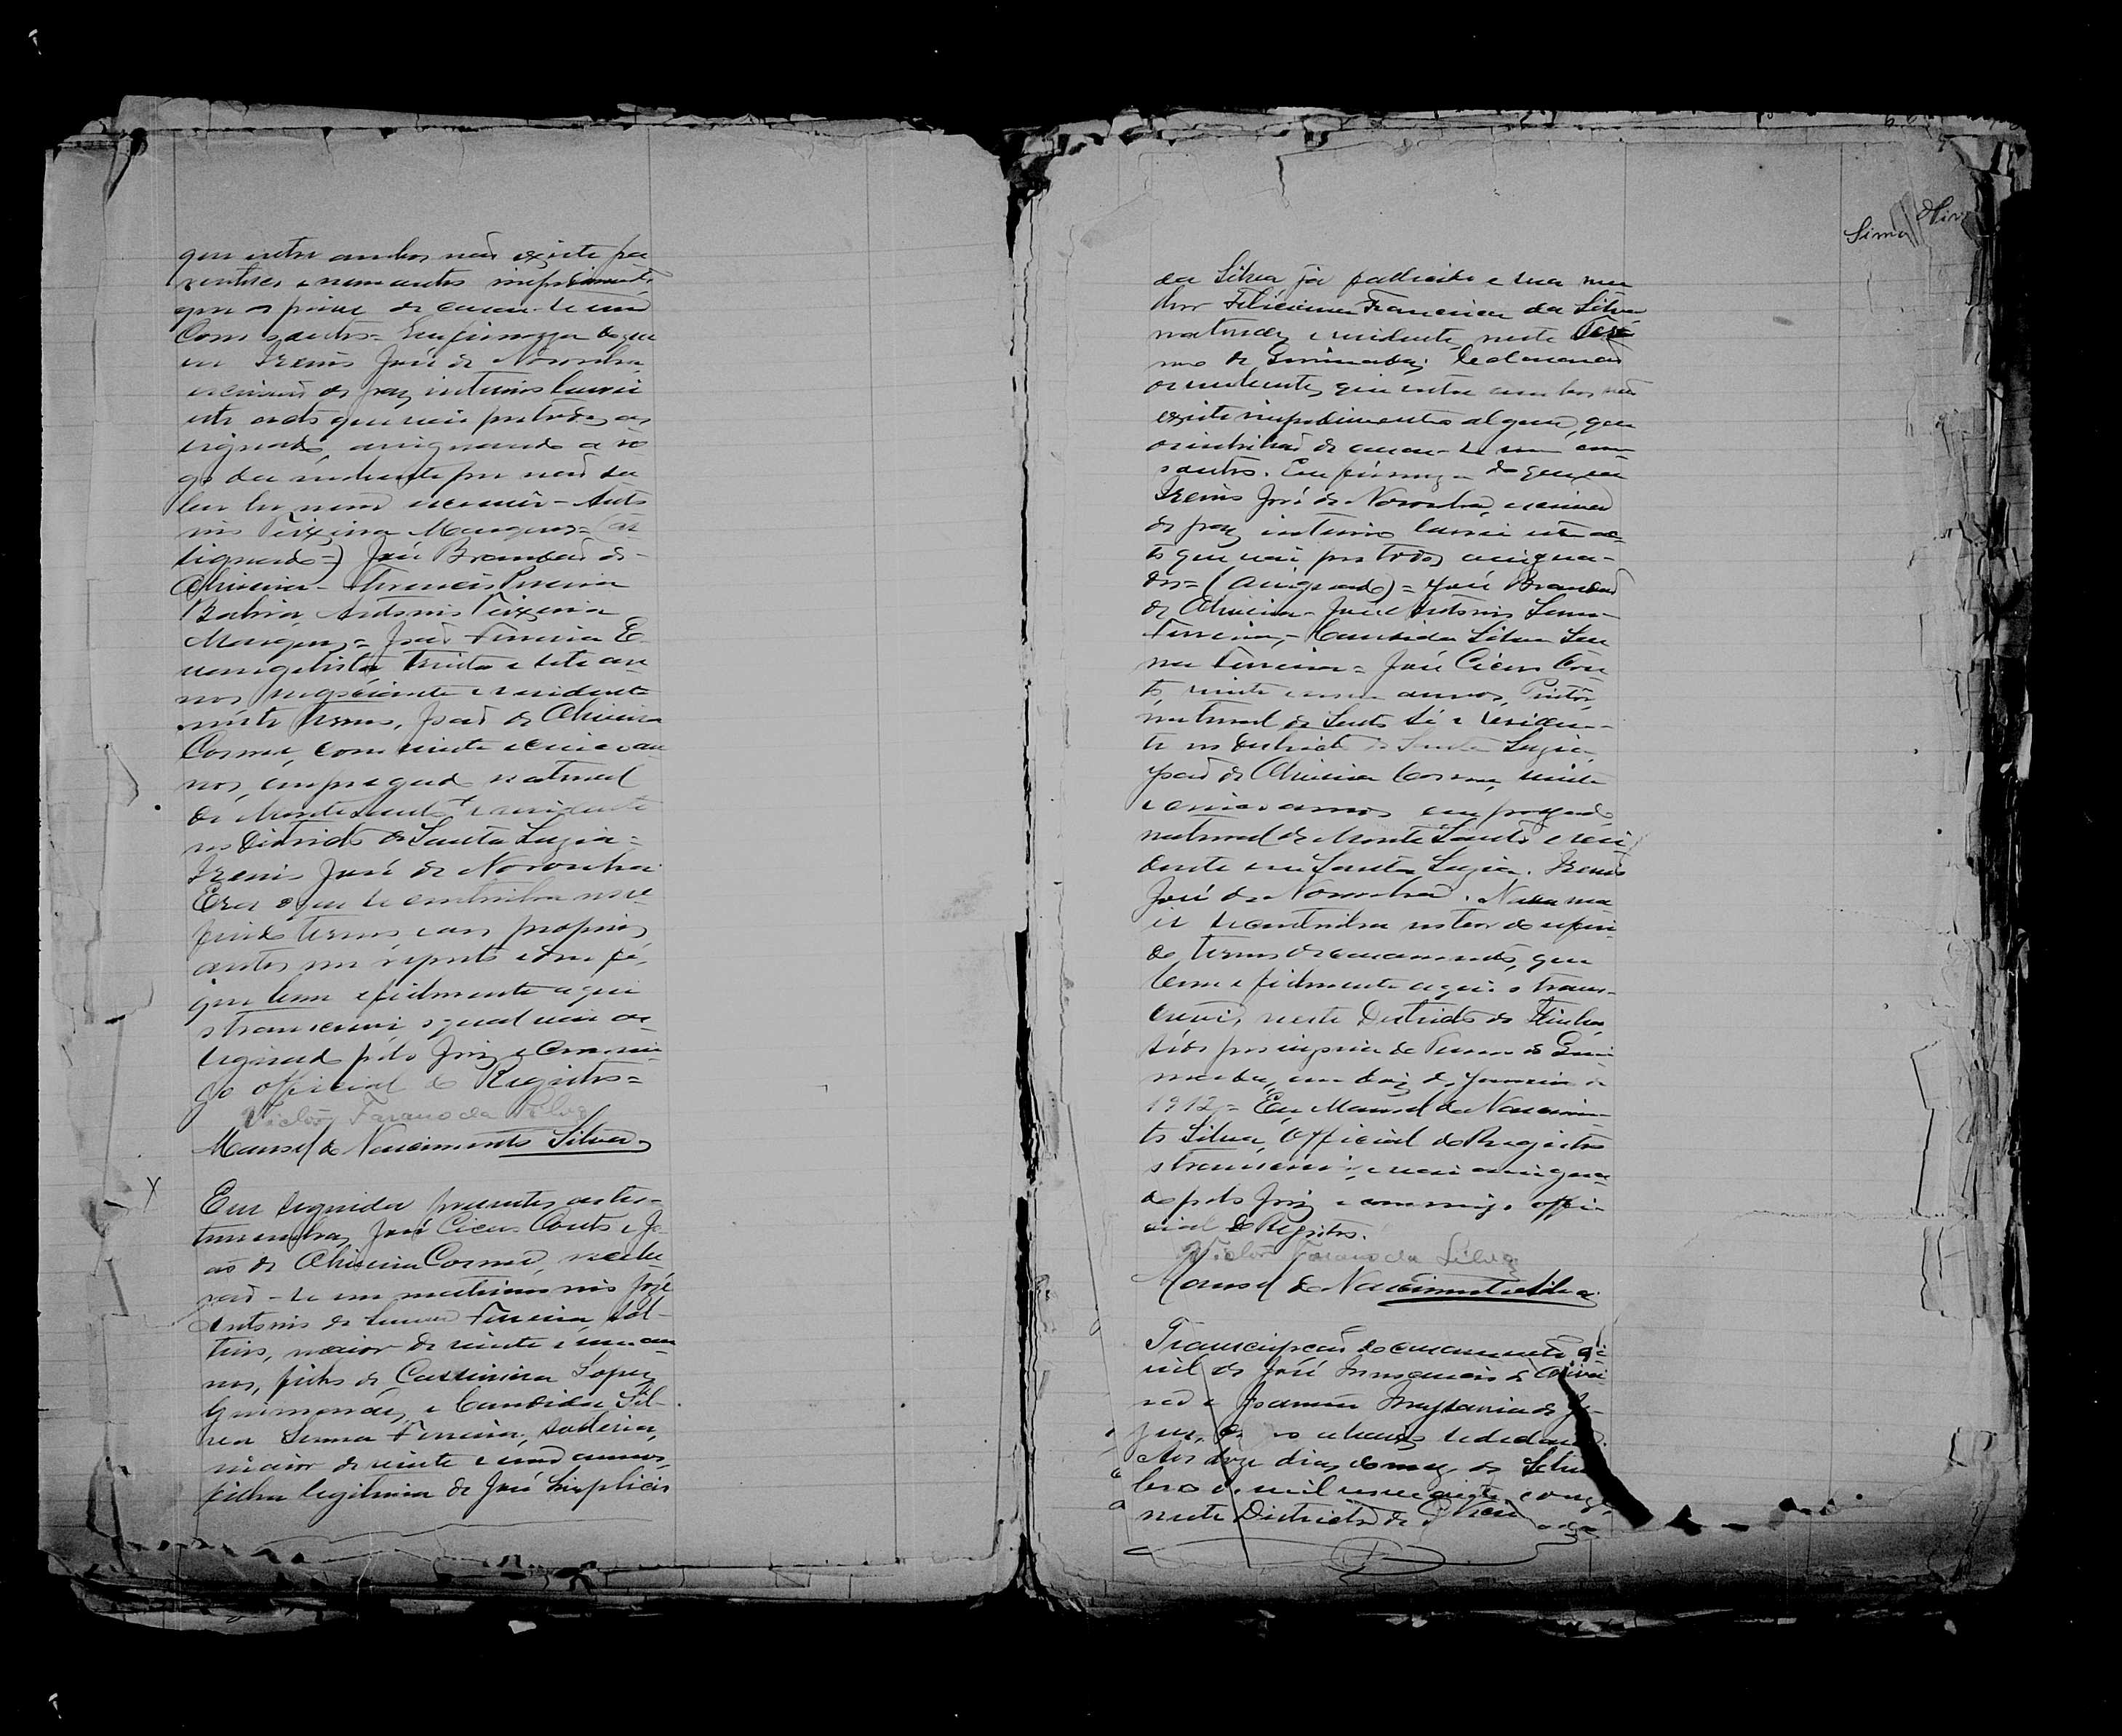 que entre ambos não existe pa
rentesco e nem outro impedimento
que os prive de casar-se um
com o outro = Em firmeza do que
eu Irenio José de Noronha
escrivão de paz interino lavrei
este acto que vai por todos as
signado, assignando a ro
go da nubente por não sa
ber ler nem escrever - Anto
nio Teixeira Marques = (as
signado =) José Brandão de
Oliveira - Pereira
Bahia, Antonio Teixeira
Marques = João Ferreira E
vangelista, trinta e sete an
nos negociante e residente
neste termo, João de Oliveira
Cosme, com vinte e cinco an
nos, empregado natural
de Monte Santo e residente
no Districto de Santa Luzia =
Irenio José de Noronha
Era o que se continha no re
ferido termo cujo proprio
autos me reporto e dou fé,
que bem e fielmente aqui
o transcrevi, o qual vai as
signado pelo Juiz e Commi
go official do Registro =
Victor Farano da Silva
Manoel do Nascimento Silva
X
Em seguida presentes as tes-
temunhas, José Cicero Couto e Jo
ão de Oliveira Cosme, recebe
rão-se em matrimonio José
Antonio de Senna Ferreira, sol-
teiro, maior de vinte e um an
nos, filho de Cassimira Lopes
Guimarães, e Candida Sil-
va Senna Ferreira, solteira,
maior de vinte e um annos,
filha legitima de José Simplicio
Lima Oliv
da Silva já fallecido e sua mu
lher Feliciana Francisca da Silva
naturaes e residentes neste Ter
mo de Declararão
os nubentes, que entre ambos não
existe impedimento algum, que
os inhibão de casar-se um com
o outro. Em firmeza do que eu
Irenio José de Noronha, escrivão
de paz interino lavrei este ac
to que vai por todos assigna-
dos = (Assignado) = José Brandão
de Oliveira - José Antonio Senna
Ferreira, - Candida Silva Sen
na Ferreira = José Cicero Cou
to, vinte e annos, Pintor,
natural de Santo Sé e residen-
te no districto de Santa Luzia,
João de Oliveira Cosme, vinte
e cinco annos empregado,
natural de Monte Santo e resi
dente em Santa Luzia. Irenio
José de Noronha. Nada ma
is se continha no teor do referi
do termo de casamento, que
bem e fielmente aqui o trans-
crevi, neste Districto de
de Termo de
em dez de Janeiro de
1912 = Eu Manoel do Nascimen-
to Silva, Official do Registro
o transcrevi, e vai assigna
do pelo Juiz e commigo offi-
cial do Registro.
Victor Farano da Silva
Manoel do Nascimento Silva
Transcripção do casamento ci
vil de José de Olivei
ra e Joanna de Je
sus, como abaixo se declara.
Aos doze dias do mez de Setem
bro de mil novecentos e onze,
neste Districto de